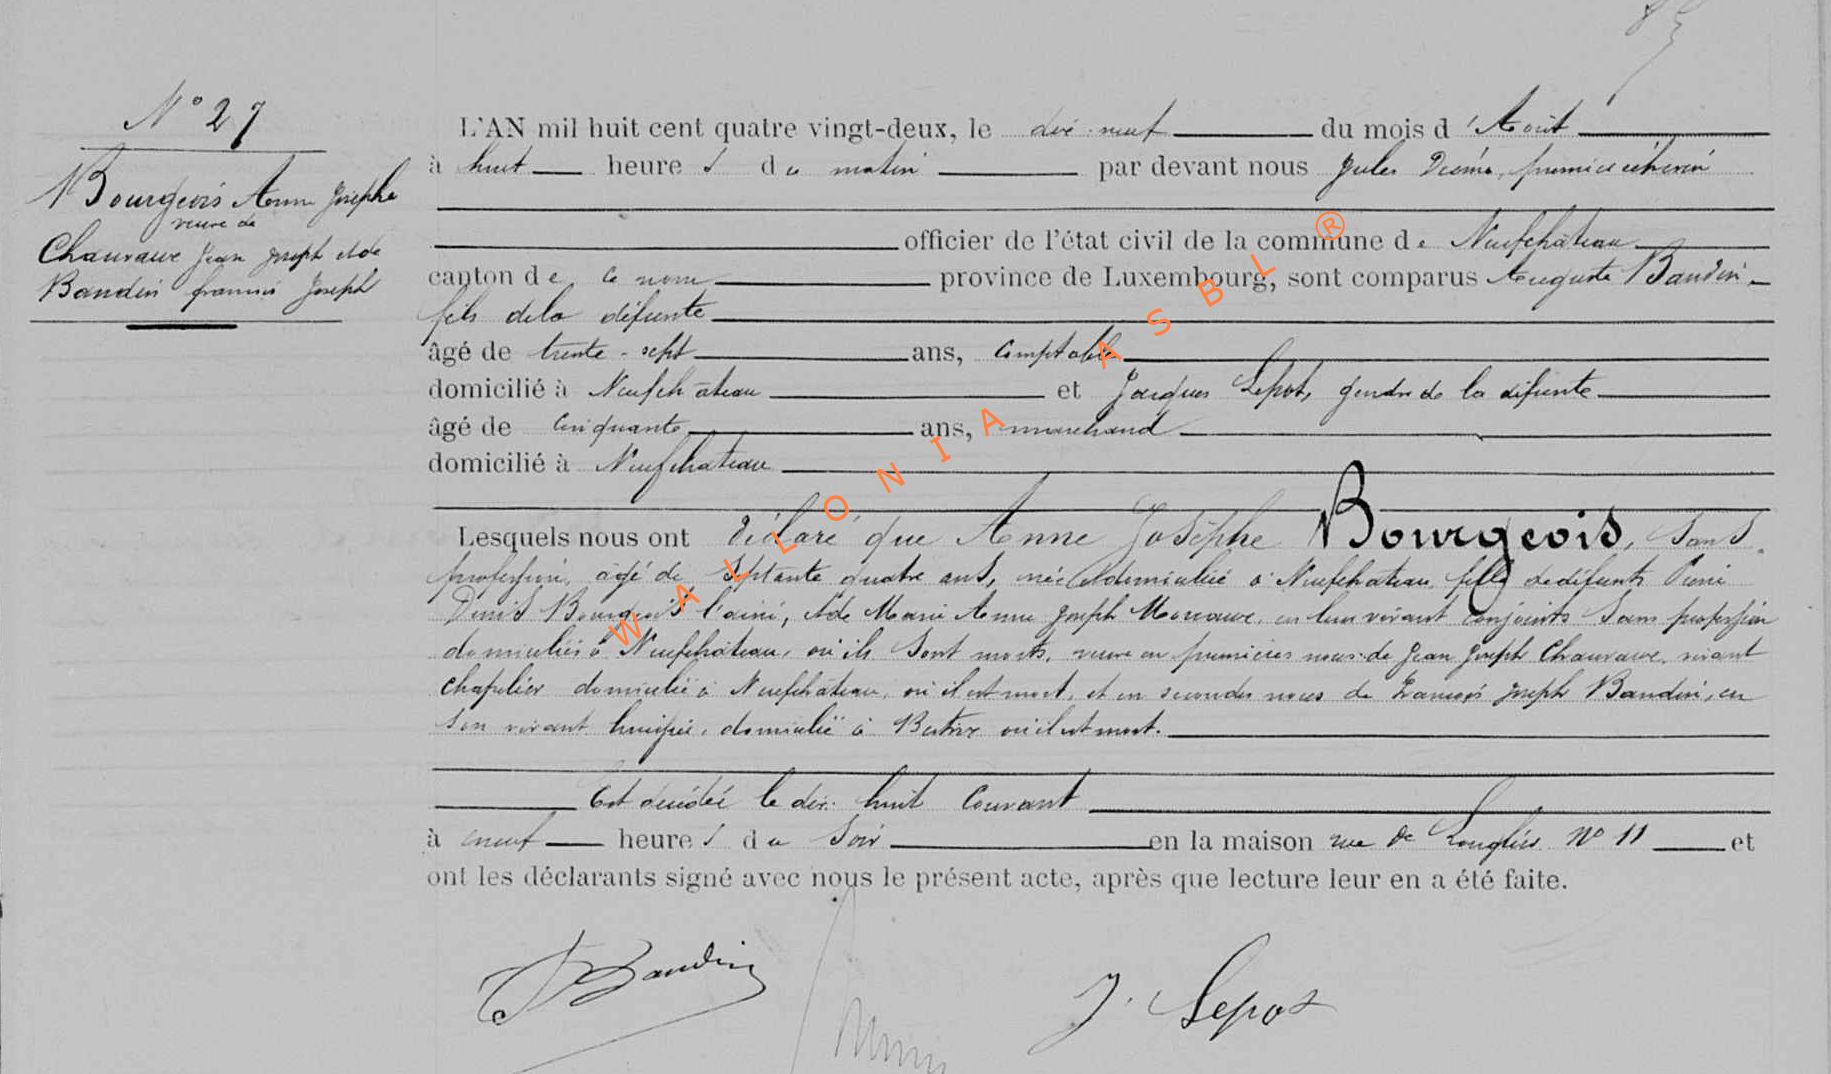 N° 27
Bourgeois Anne Josephe
veuve de
Chauvaux Jean Joseph et de
Baudin françois Joseph
L'AN mil huit cent quatre vingt-deux, le dix-neuf du mois d'Août
à huit heures du matin par devant nous Jules premier échevin
officier de l'état civil de la commune de Neufchâteau
canton de ce nom province de Luxembourg, sont comparus Auguste Baudin
fils de la défunte
âgé de trente-sept ans, Comptable
domicilié à Neufchâteau et Jacques Lepot, gendre de la défunte
âgé de Cinquante ans, marchand
domicilié à Neufchateau
Lesquels nous ont déclaré que Anne Josèphe Bourgeois, sans
profession, agé de Septante quatre ans, née et domiciliée à Neufchateau fille de défunts
Denis Bourgeois l'ainé, et de Marie Anne Joseph en leur vivant conjoints sans profession
domiciliés à Neufchâteau, où ils sont morts, veuve en premières noces de Jean Joseph Chauvaux, vivant
chapelier domicilié à Neufchâteau, où il est mort, et en secondes noces de François Joseph Baudin, en
son vivant huissier, domicilié à où il est mort.
Est décédée le dix-huit Courant
à neuf heures du Soir en la maison rue de Longlier N° 11 et
ont les déclarants signé avec nous le présent acte, après que lecture leur en a été faite.
Baudin
J. Lepot
WALLONIA ASBL ®